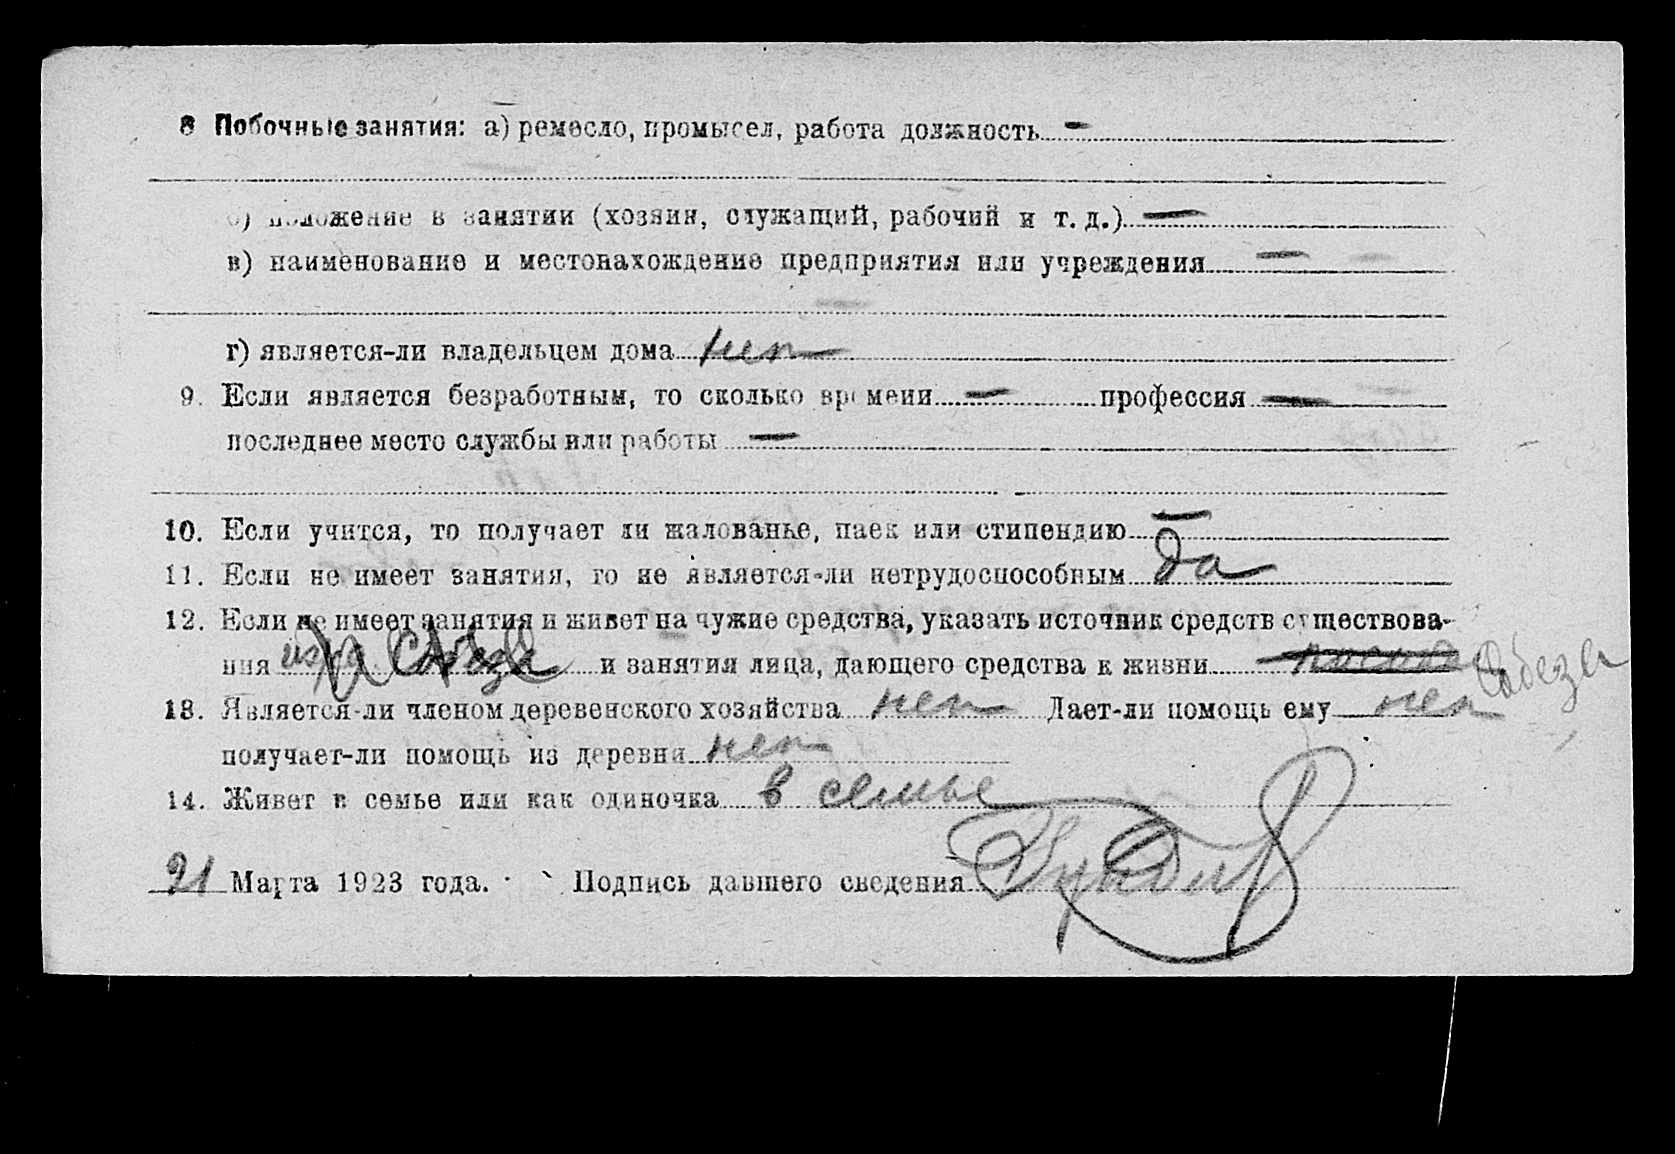 8 Побочные занятия: а) ремесло, промысел, работа должность —
б) положение в занятии (хозяин, служащий, рабочий и т. д.) —
в) наименование и местонахождение предприятия или учреждения —
г) является-ли владельцем дома нет
9. Если является безработным, то сколько времени — профессия —
последнее место службы или работы —
10. Если учится, то получает ли жалованье, паек или стипендию —
11. Если не имеет занятия, то не является-ли нетрудоспособным да
12. Если не имеет занятия и живет на чужие средства, указать источник средств существова-
ния и занятия лица, дающего средства к жизни Собеза
13. Является-ли членом деревенского хозяйства нет Дает-ли помощь ему нет
получает-ли помощь из деревни нет
14. Живет в семье или как одиночка в семье
21 Марта 1923 года. Подпись давшего сведения